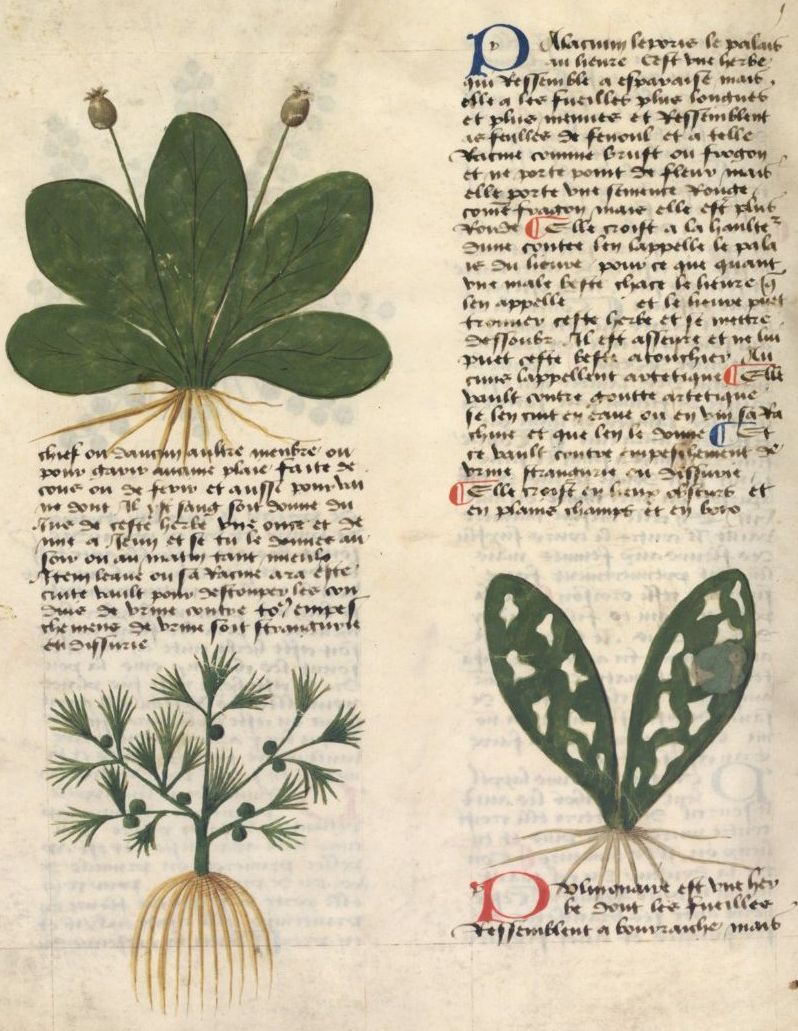 chief ou daucun aultre menbre ou
pour garir aucune plaie faitte de
cous ou de ferir et aussi pour un
ne dont il yst sang soit donne du
ius de ceste herbe une once et de
mie a Jeun et se tu le donnes au
soir ou au matin tant mieulx
Item leaue ou sa Racine ara este
cuite vault pour destouper les con
duis de urine contre to9 empes
chemens de urine soit strangurie
et dissurie
Palacium leporis le palais
au lieure Cest une herbe
qui Ressemble a esparaise mais
elle a les fueilles plus longues
et plus menues et Ressemblent
as feulles de fenoul et a telle
Racine comme brust ou frogon
et ne porte point de fleur mais
elle porte une semence Rouge
come fragon mais elle est plus
Ronde ¶ Elle croist a la haulte2
dune coutee len lappelle le pala
is du lieure pour ce que quant
une male beste chace le lieure q
len appelle et le lieure puet
trouuer ceste herbe et se mettre
dessoubz Il est asseure et ne lui
puet ceste beste atouchier Au
cuns lappellent artetique ¶ Elle
vault contre goutte artetique
se len cuit en eaue ou en vin sa Ra
chine et que len le donne ¶ Et
ce vault contre empeschement de
urine strangurie ou dissurie
¶ Elle croist en lieux obscurs et
en plains champs et en bois
Pulmonaire est une her
be dont les fueilles
Ressemblent a bourraiche mais